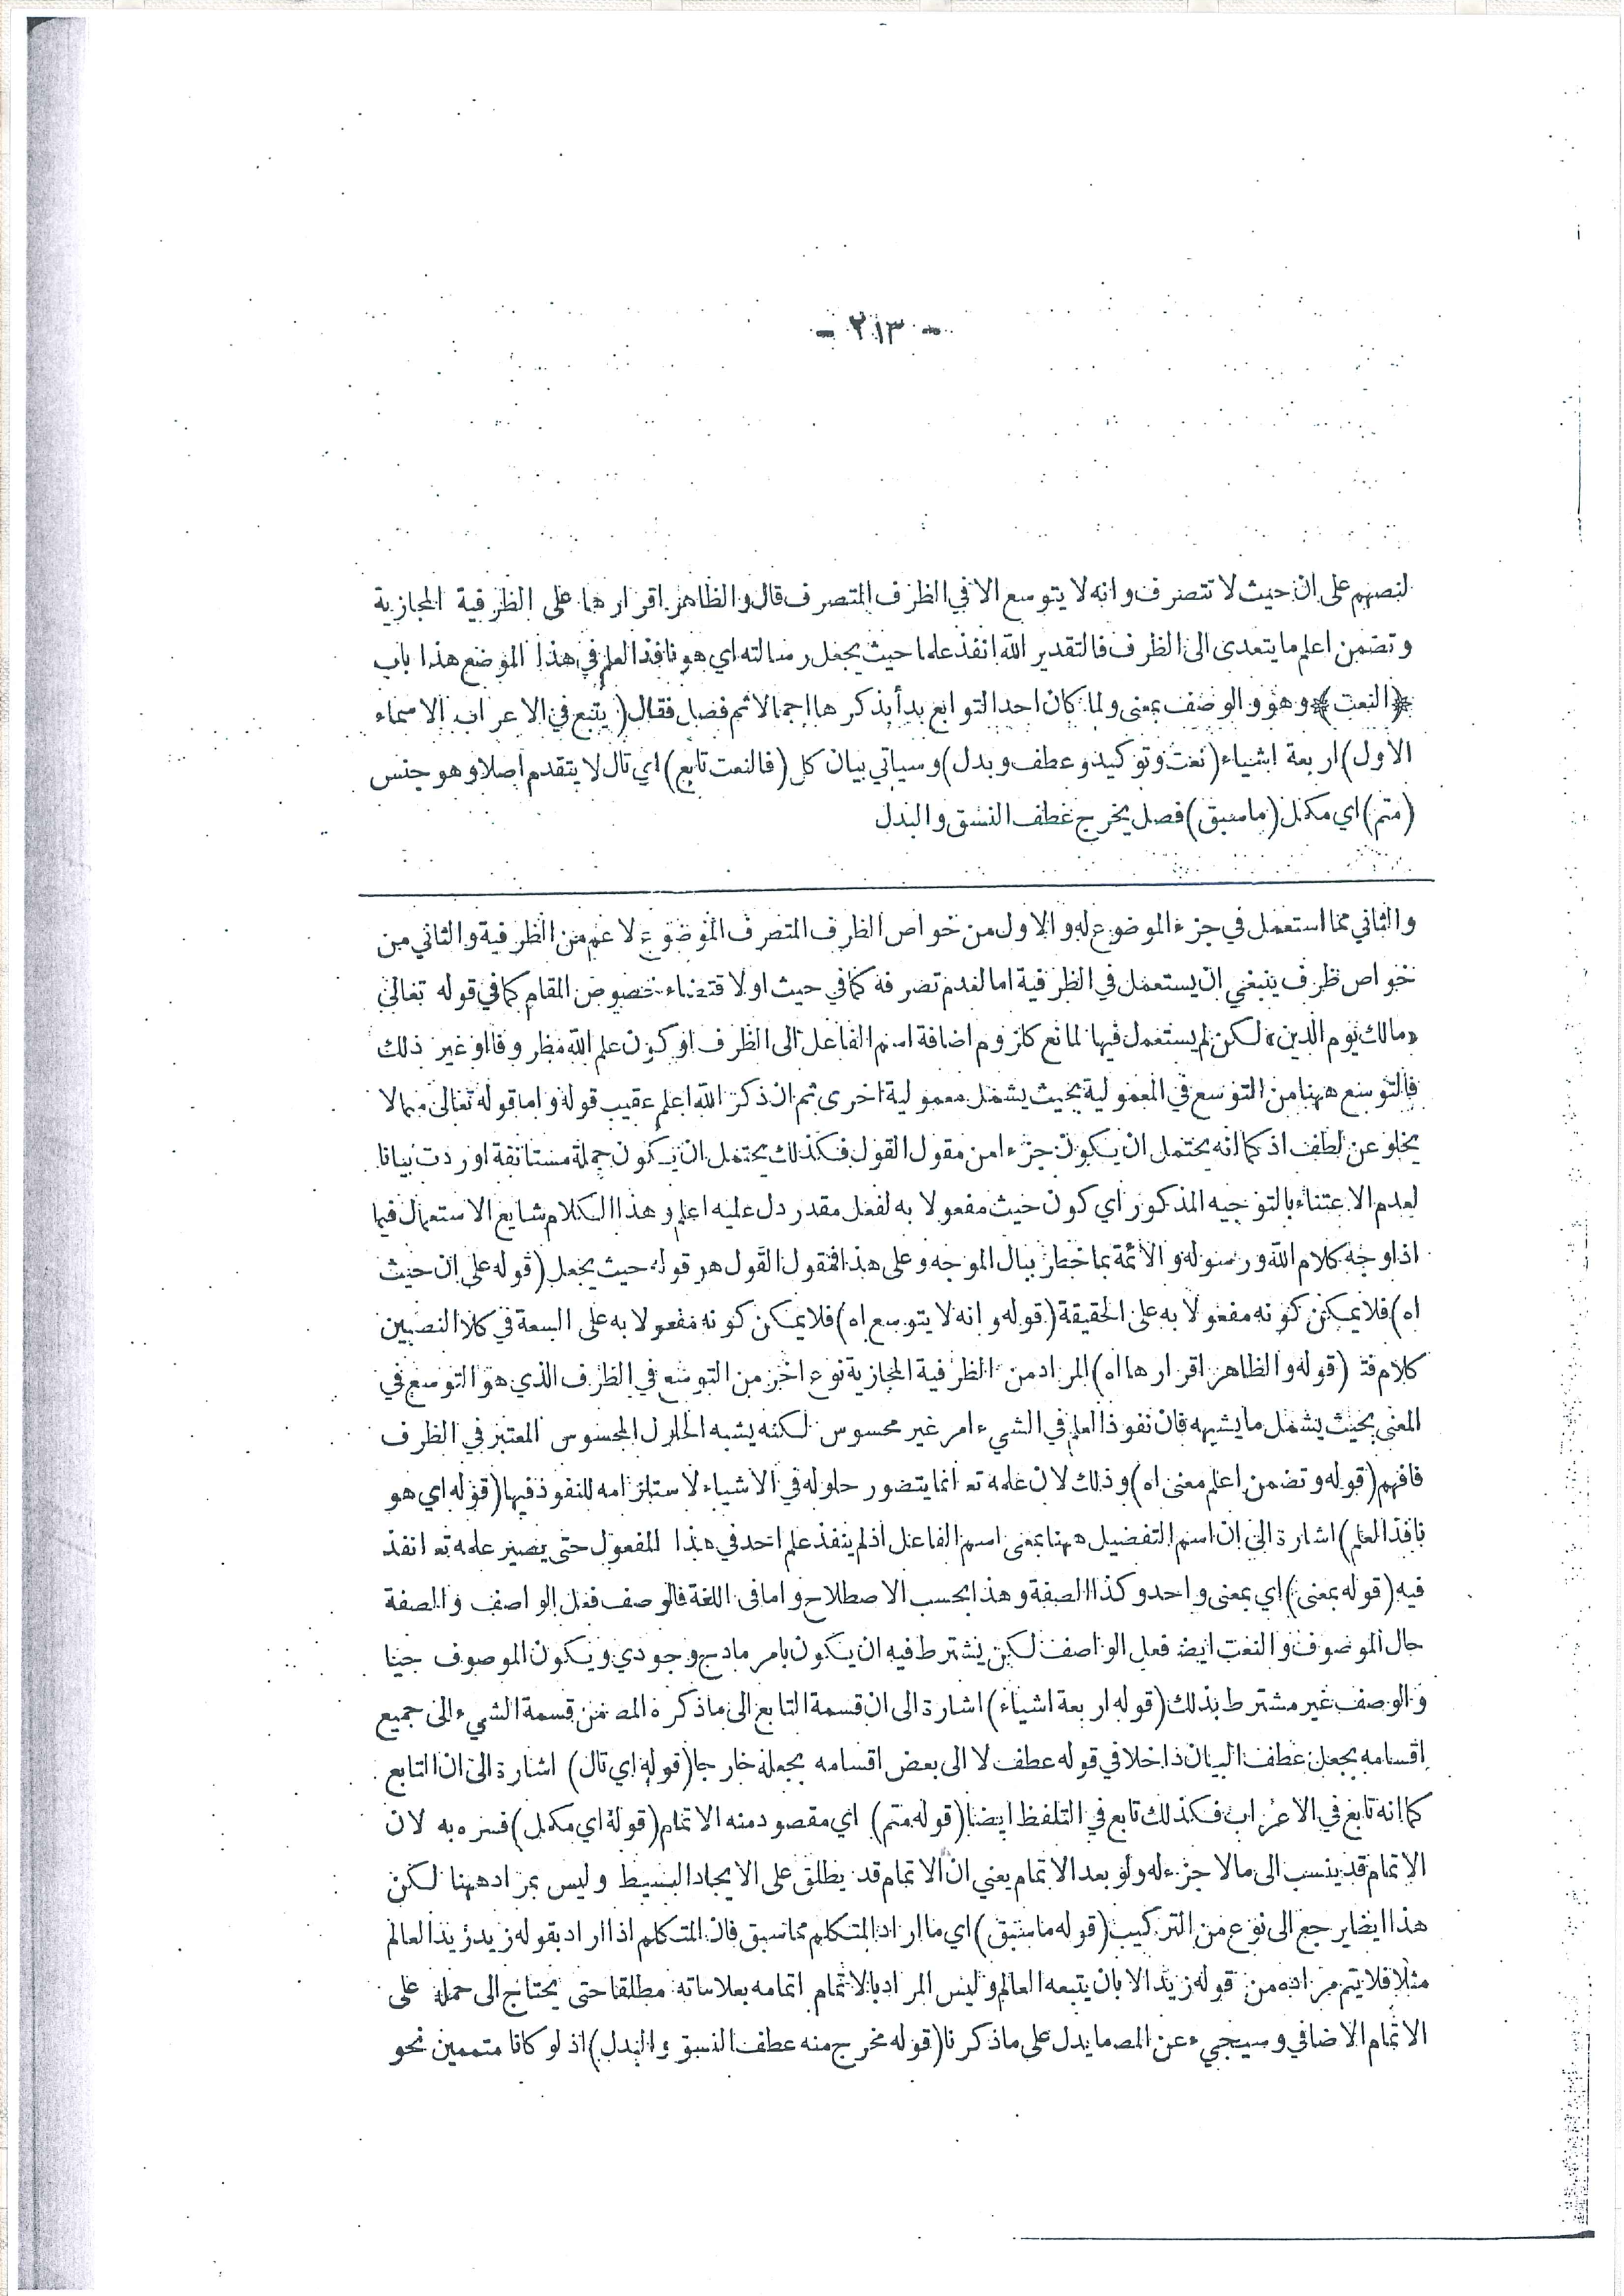 - ٢١٣ -
لنصهم على ان حيث لا تتصرف وانه لا يتوسع الا في الظرف المتصرف قال والظاهر اقرارها على الظرفية المجازية
وتضمن اعلم ما يتعدى الى الظرف فالتقدير الله انفذ علما حيث يجعل رسالته اي هو نافذ العلم في هذا الموضع هذا باب
﴿النعت﴾ وهو والوصف بمعنى ولما كان احد التوابع بدأ بذكرها اجمالا ثم فصل فقال (يتبع في الاعراب الاسماء
الاول) اربعة اشياء (نعت وتوكيد وعطف وبدل) وسياتي بيان كل (فالنعت تابع) اي تال لا يتقدم اصلا وهو جنس
(متم) اي مكمل (ما سبق) فصل يخرج عطف النسق والبدل
والثاني مما استعمل في جزء الموضوع له والاول من خواص الظرف المتصرف الموضوع لاعم من الظرفية والثاني من
خواص ظرف ينبغي ان يستعمل في الظرفية اما لعدم تصرفه كما في حيث او لاقتضاء خصوص المقام كما في قوله تعالى
«مالك يوم الدين» لكن لم يستعمل فيها لمانع كلزوم اضافة اسم الفاعل الى الظرف او كون علم الله مظروفا او غير ذلك
فالتوسع ههنا من التوسع في المعمولية بحيث يشمل معمولية اخرى ثم ان ذكر الله اعلم عقيب قوله واما قوله تعالى مما لا
يخلو عن لطف اذ كما انه يحتمل ان يكون جزءا من مقول القول فكذلك يحتمل ان يكون جملة مستانفة اوردت بيانا
لعدم الاعتناء بالتوجيه المذكور اي كون حيث مفعولا به لفعل مقدر دل عليه اعلم وهذا الكلام شايع الاستعمال فيما
اذا وجه كلام الله ورسوله والائمة بما خطر ببال الموجه وعلى هذا فمقول القول هو قوله حيث يجعل (قوله على ان حيث
اه) فلا يمكن كونه مفعولا به على الحقيقة (قوله وانه لا يتوسع اه) فلا يمكن كونه مفعولا به على السعة في كلا النصبين
كلام فتـ (قوله والظاهر اقرارها اه) المراد من الظرفية المجازية نوع اخر من التوسع في الظرف الذي هو التوسع في
المعنى بحيث يشمل ما يشبهه فان نفوذ العلم في الشيء امر غير محسوس لكنه يشبه الحلول المحسوس المعتبر في الظرف
فافهم (قوله وتضمن اعلم معنى اه) وذلك لان علمه تعـ انما يتصور حلوله في الاشياء لاستلزامه للنفوذ فيها (قوله اي هو
نافذ العلم) اشارة الى ان اسم التفضيل ههنا بمعنى اسم الفاعل اذ لم ينفذ علم احد في هذا المفعول حتى يصير علمه تعـ انفذ
فيه (قوله بمعنى) اي بمعنى واحد وكذا الصفة وهذا بحسب الاصطلاح واما في اللغة فالوصف فعل الواصف والصفة
حال الموصوف والنعت ايضـ فعل الواصف لكن يشترط فيه ان يكون بامر مادح وجودي ويكون الموصوف حينا
والوصف غير مشترط بذلك (قوله اربعة اشياء) اشارة الى ان قسمة التابع الى ما ذكره المصـ من قسمة الشيء الى جميع
اقسامه بجعل عطف البيان داخلا في قوله عطف لا الى بعض اقسامه بجعله خارجا (قوله اي تال) اشارة الى ان التابع
كما انه تابع في الاعراب فكذلك تابع في التلفظ ايضا (قوله متم) اي مقصود منه الاتمام (قوله اي مكمل) فسره به لان
الاتمام قد ينسب الى ما لا جزء له ولو بعد الاتمام يعني ان الاتمام قد يطلق على الايجاد البسيط وليس بمراد ههنا لكن
هذا ايضا يرجع الى نوع من التركيب (قوله ما سبق) اي ما اراد المتكلم مما سبق فان المتكلم اذا اراد بقوله زيد زيد العالم
مثلا فلا يتم مراده من قوله زيد الا بان يتبعه العالم وليس المراد بالاتمام اتمامه بعلاماته مطلقا حتى يحتاج الى حمله على
الاتمام الاضافي وسيجيء عن المصـ ما يدل على ما ذكرنا (قوله مخرج منه عطف النسق والبدل) اذ لو كانا متممين نحو